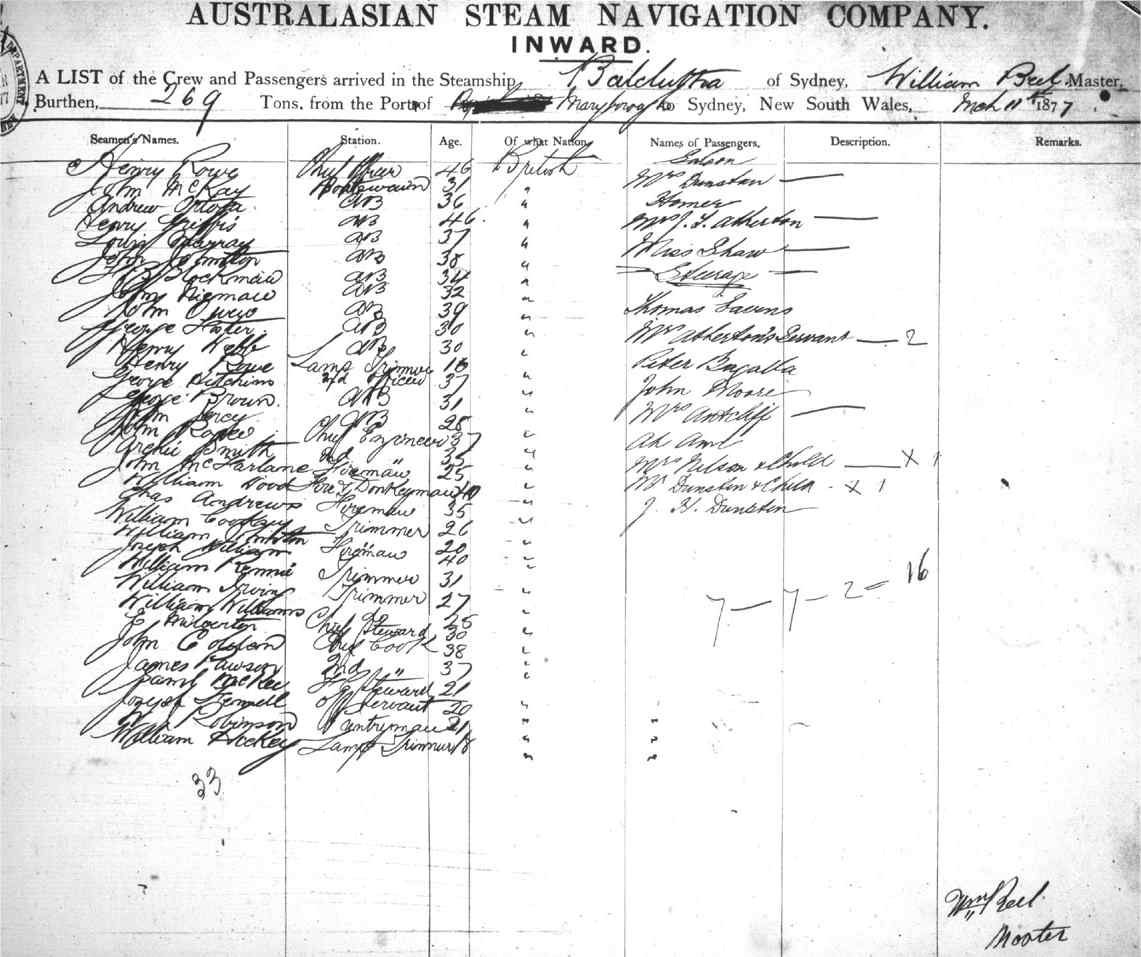 AUSTRALASIAN STEAM NAVIGATION COMPANY.
INWARD.
A LIST of the Crew and Passengers arrived in the Steamship, Balclutha of Sydney, William Beel Master,
Burthen, 269 Tons, from the Port of Maryborough to Sydney, New South Wales, Mch 11th 1877
Seamen's Names. Station. Age. Of what Nation. Names of Passengers. Description. Remarks.
Henry Rowe Chief Officer 46 British Saloon
John McKay Boatswain 31 " Mrs Dunstan
Andrew AB 36 " Homer
Henry Griffis AB 46 " Mrs J. T. Atherton
Louis Murray AB 37 " Miss Shaw
John Johnston AB 38 " Steerage
B Blockman AB 34 "
John Niemann AB 32 " Thomas
John Owen AB 39 "
George AB 30 " Mrs Atherton's Servant 2
Henry Webb AB 30 "
Henry Rowe Lamp Trimmer 16 " Peter
George Hitchins 2nd Officer 37 " John Moore
George Brown AB 31 " Mrs Antcliff
John AB 25 "
John Chief Engineer 37 " Ah
Archie Smith 2nd " "
John McFarlane Fireman 25 " Mrs Nelson & Child X 1
William Wood Fore & Donkeyman " Mr Dunstan & Child - X 1
Chas Andrews Fireman 35 " J. H. Dunstan
William Trimmer 26 "
William Johnston " 20 "
Joseph William Fireman 40 "
William Rennie Trimmer 31 "
William Irvin Trimmer 27 " 7 — 7 - 2 = 16
William Williams Do 25 "
E Milverton Chief Steward 30 "
John Chief Cook 38 "
James Rawson 2nd " 37 "
Saml McKee Steward 21 "
Joseph Fennell Off Servant 20 "
Wm Robinson Pantryman 21 "
William Hockey Lamp Trimmer 18 "
33
Wm Beel
Master